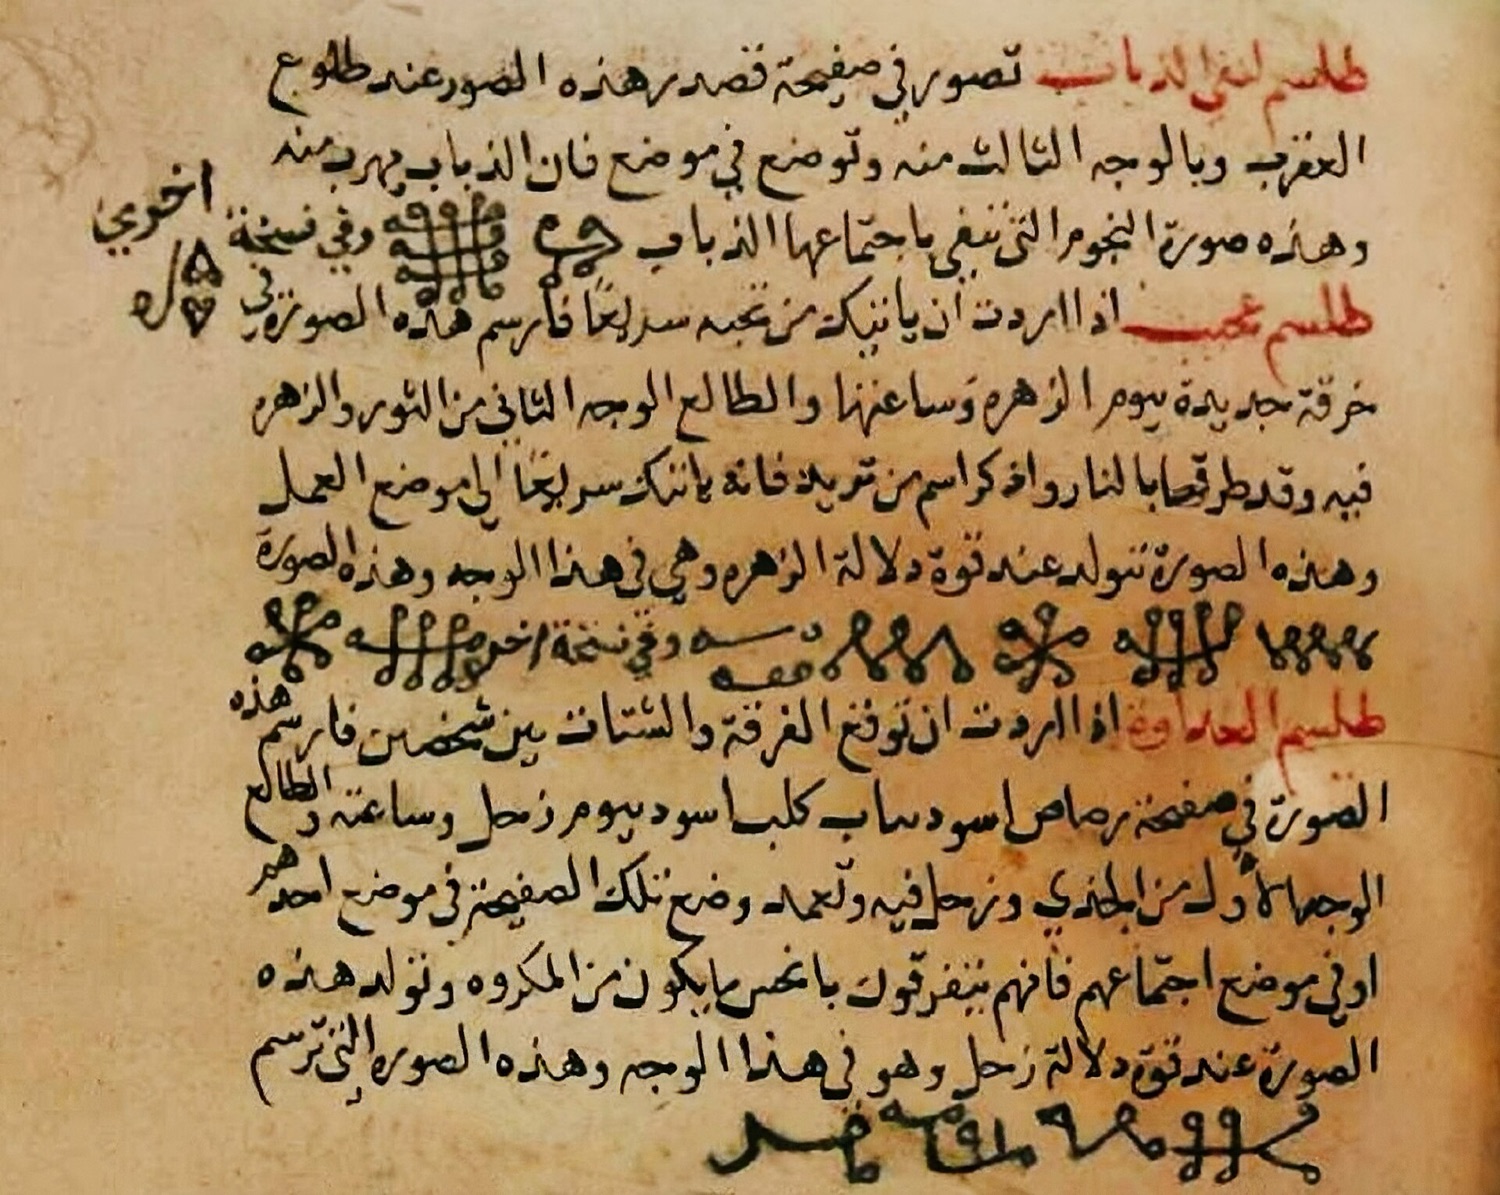 طلسم لنفي الذباب تصور في صفيحة قصدير هذه الصور عند طلوع
العقرب وبالوجه الثالث منه وتوضع في موضع فان الذباب يهرب منه
وهذه صورة النجوم التي تنفي باجتماعها الذباب وفي نسخة
اخري
طلسم اذا اردت ان ياتيك من تحبه سريعًا فارسم هذه الصورة في
خرقة جديدة بيوم الزهره وساعتها والطالع الوجه الثاني من الثور والزهره
فيه وقد طرقتها بالنار واذكر اسم من تريد فانه ياتيك سريعًا الي موضع العمل
وهذه الصورة تتولد عند قوة دلالة الزهره وهي في هذا الوجه وهذه الصورة
وفي نسخة اخري
طلسم العداوة اذا اردت ان توقع الفرقة والشتات بين شخصين فارسم هذه
الصورة في صفيحة رصاص اسود بناب كلب اسود بيوم زحل وساعته والطالع
الوجه الاول من الجدي وزحل فيه وتعمد وضع تلك الصفيحة في موضع احدهم
او في موضع اجتماعهم فانهم يتفرقون بانحس ما يكون من المكروه وتولد هذه
الصورة عند قوة دلالة زحل وهو في هذا الوجه وهذه الصوره التي ترسم